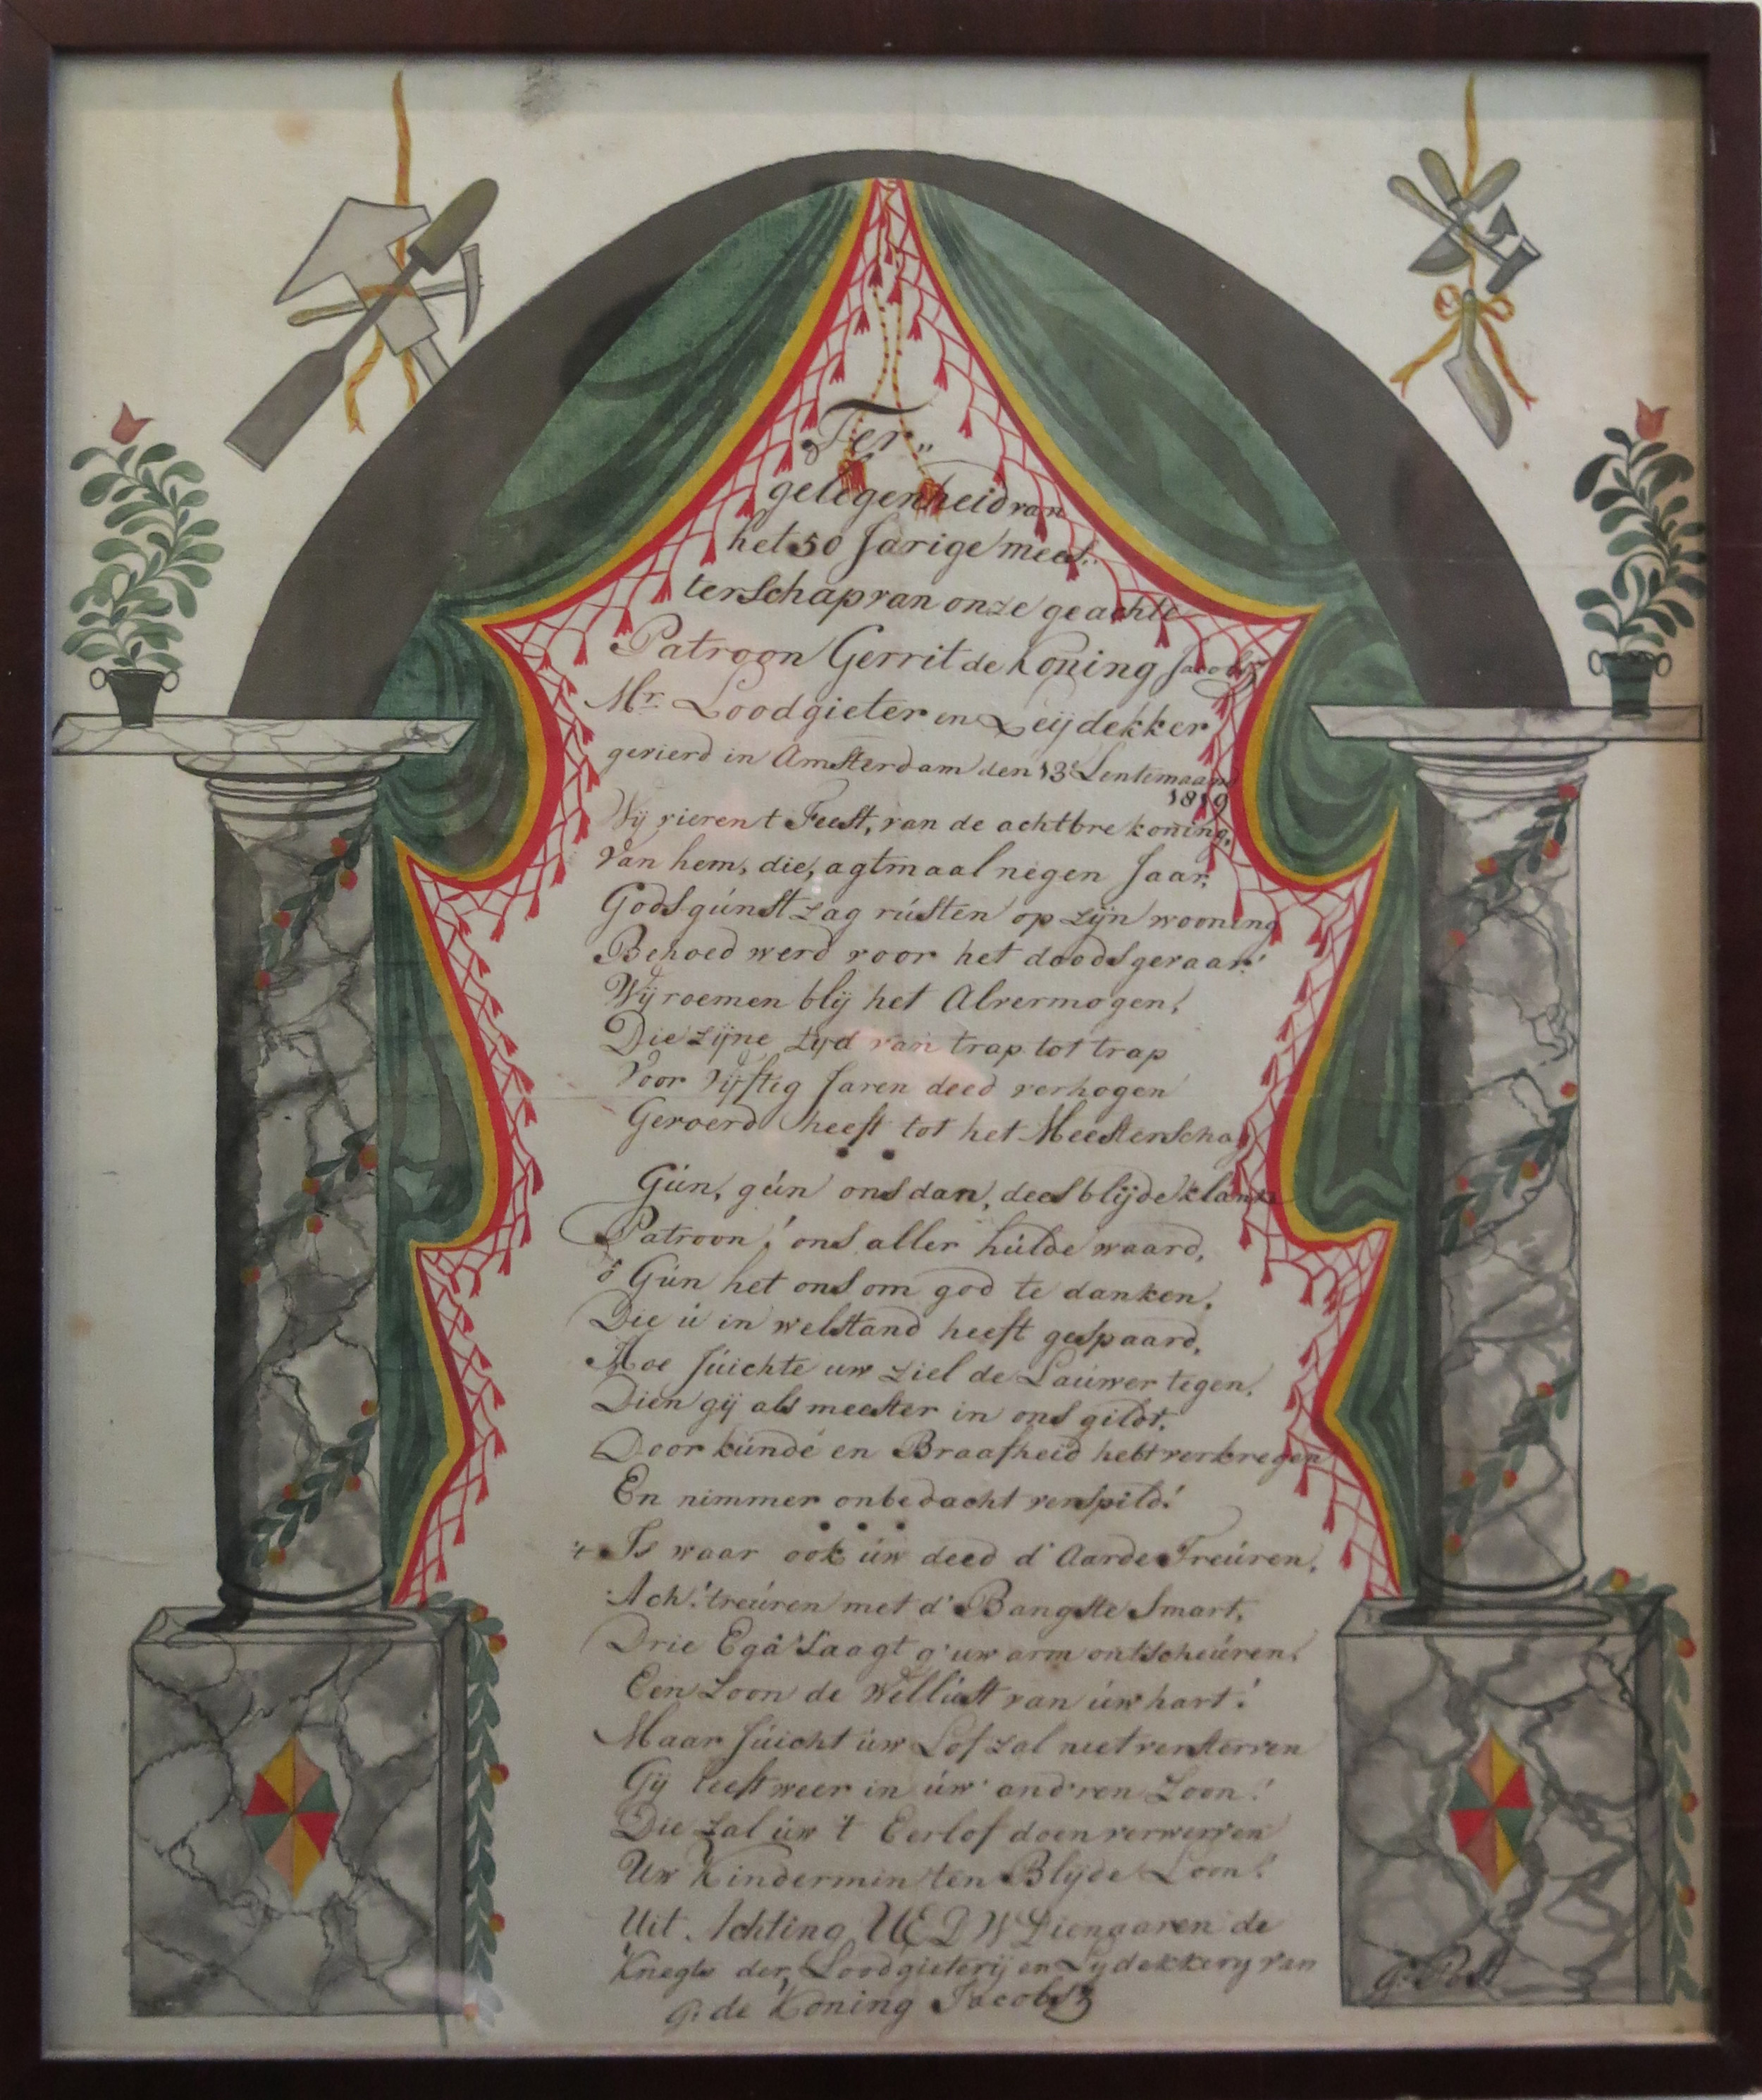 Ter„
gelegenheid van
het 50 Jarige mees„
terschap van onze geachte
Patroon Gerrit de Koning Jacobsz
Mr. Loodgieter en Leijdekker
gevierd in Amsterdam den 13e Lentemaand
1819
Wij vieren t Feest, van de achtbre koning,
Van hem, die, agtmaal negen Jaar,
Gods gúnst zag rústen op zijn wooning
Behoed werd voor het doodsgevaar!
Wij roemen blij het Alvermogen!
Die zijne tyd van trap tot trap
Voor Vijftig Jaren deed verhogen
Gevoerd heeft tot het Meesterschap
Gún, gún ons dan, dees blijde klanken
Patroon! ons aller húlde waard,
ó Gún het ons om god te danken,
Die ú in welstand heeft gespaard,
Hoe Júichte uw ziel de Laúwer tegen,
Dien gij als meester in ons gildt,
Door kúnde en Braafheid hebt verkregen
En nimmer onbedacht verspild!
't Is waar ook úw deed d' Aarde Treúren,
Ach! treúren met d' Bangste Smart,
Drie Egâ's zaagt g' uw arm ontscheúren!
Een Zoon de Wellúst van úw hart!
Maar Júicht úw Lof zal niet versterven
Gij leeft weer in úw' and'ren Zoon!
Die zal úw 't Eerlof doen verwerven
Uw Kindermin ten Blijde Loon!
Uit Achting UEDW Dienaaren de
Knegts der Loodgieterij en Lydekkery van
G: de Koning Jacobsz
G: Post